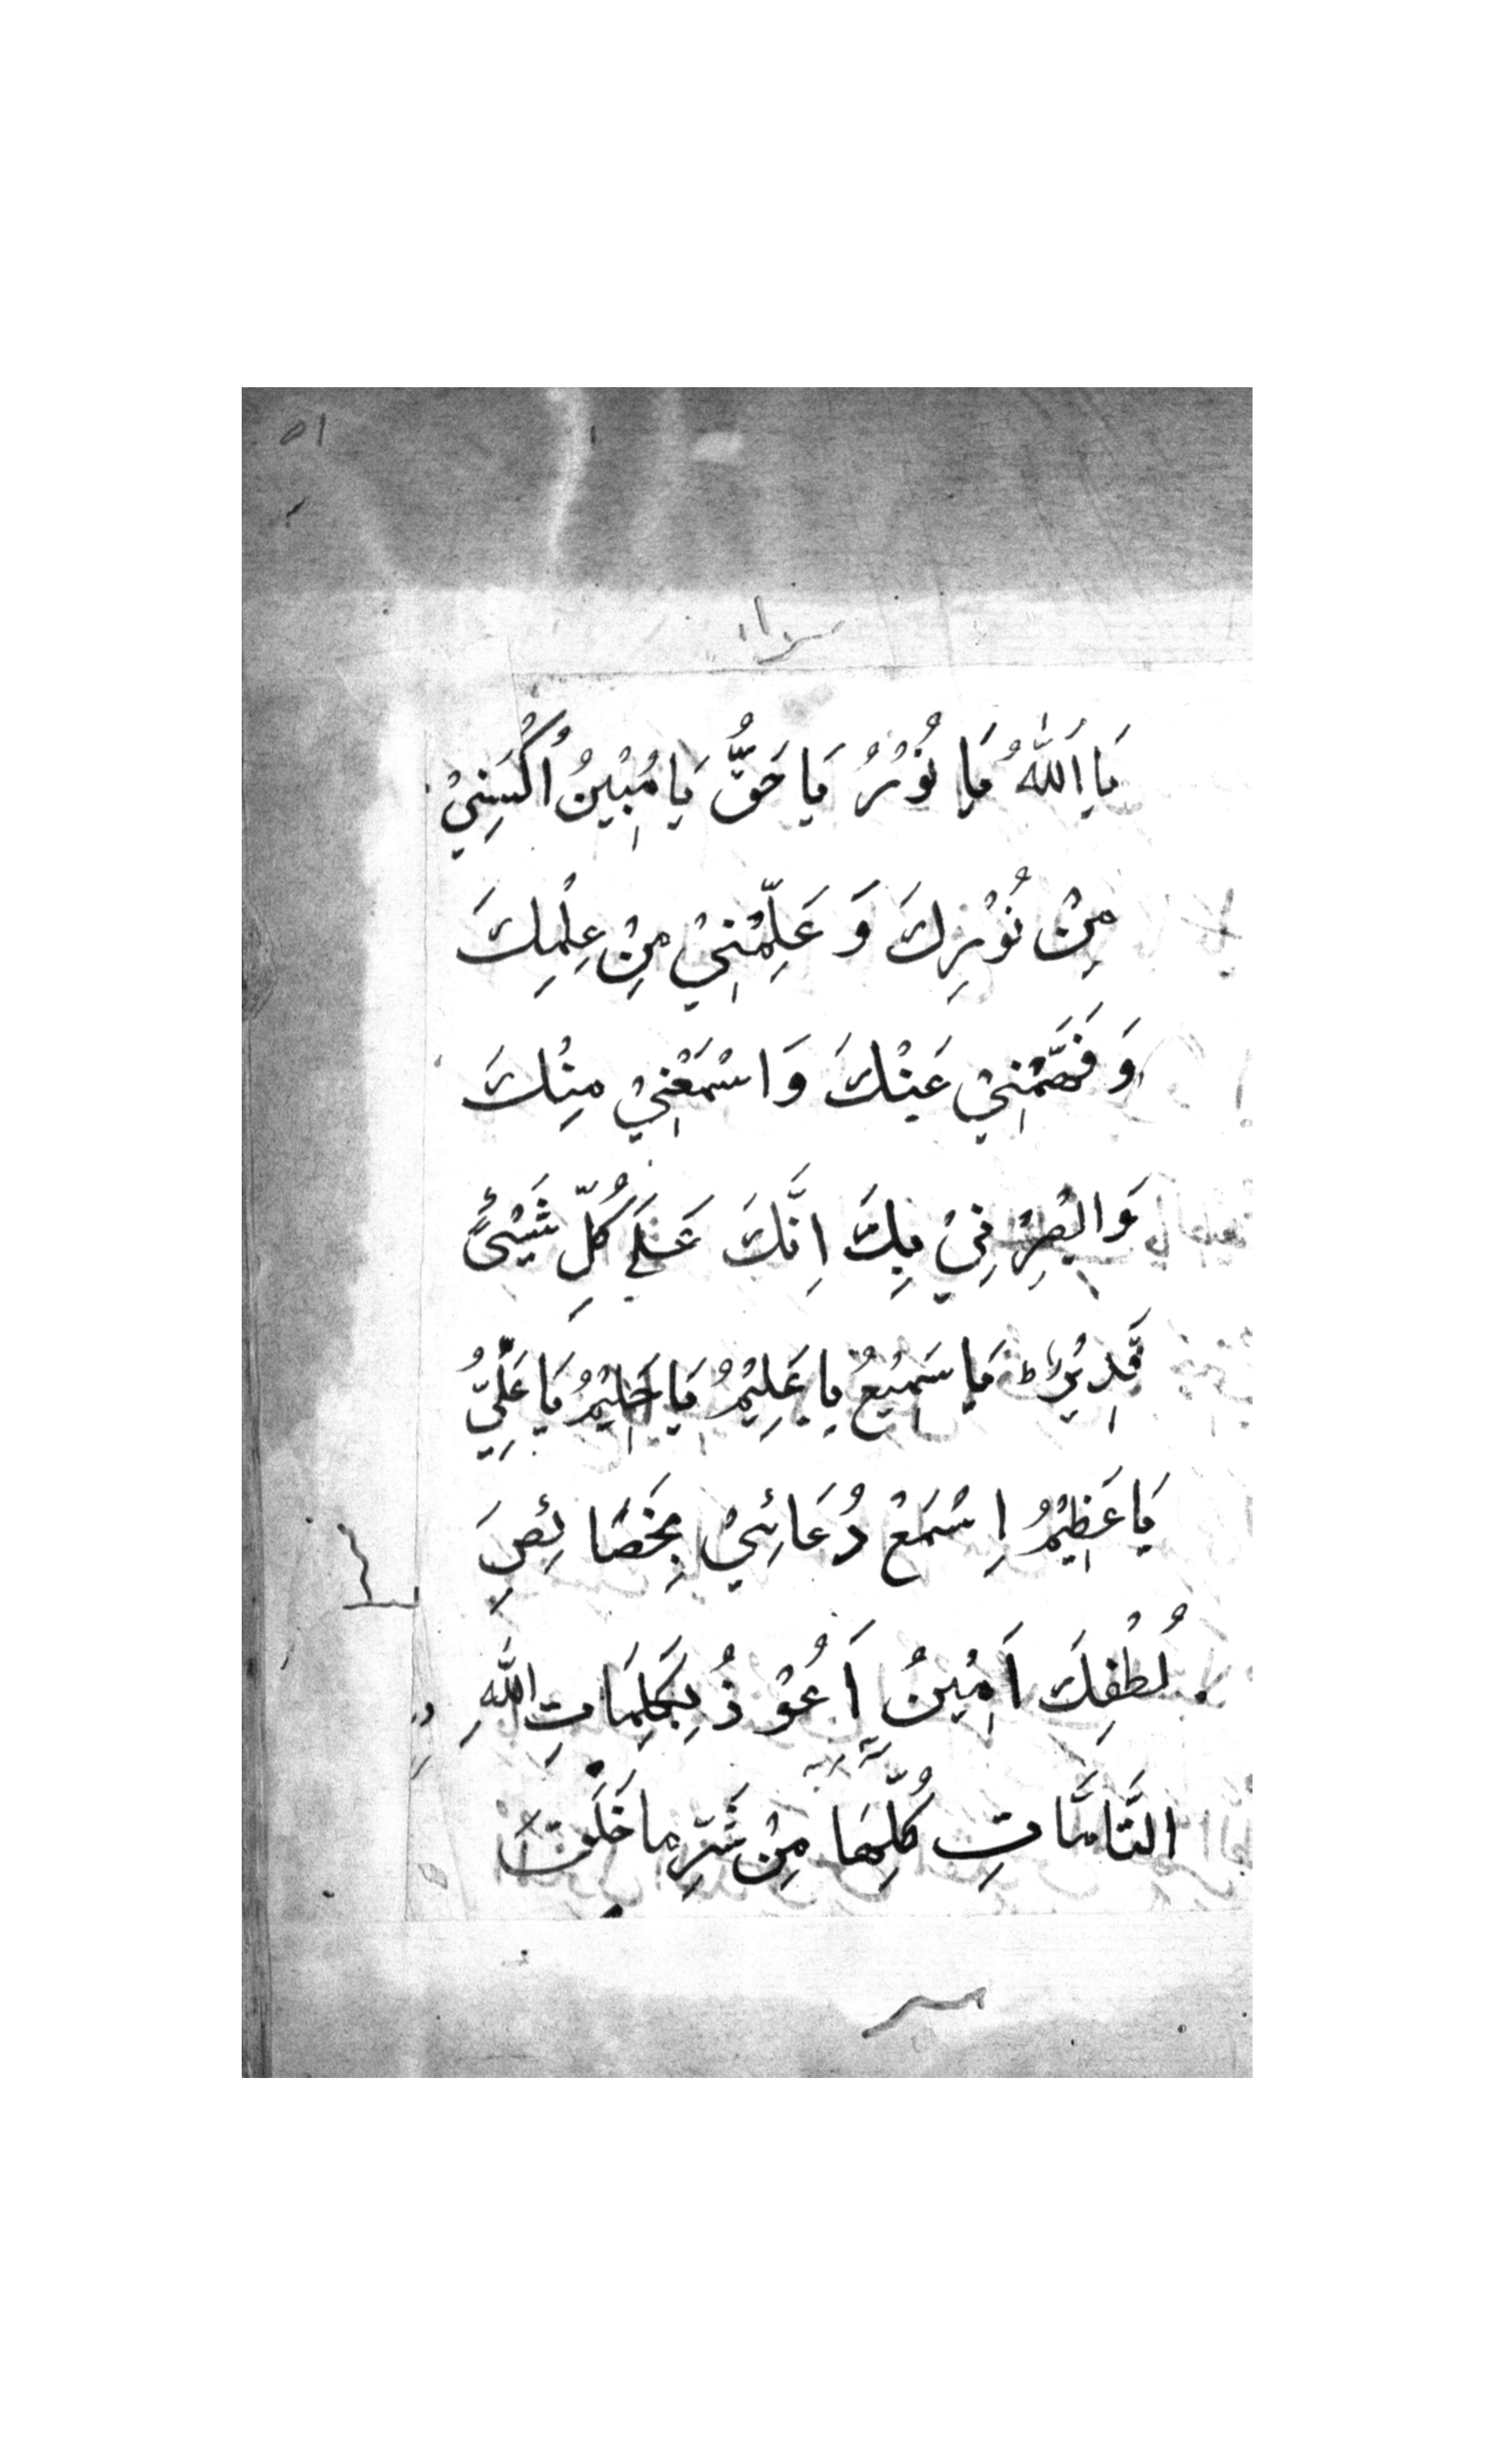 ٥١
يَا اَللّٰهُ يَا نُوْرُ يَا حَقُّ يَا مُبِيْنُ اُكْسُنِيْ
مِنْ نُوْرِكَ وَ عَلِّمْنِيْ مِنْ عِلْمِكَ
وَ فَهِّمْنِيْ عَنْكَ وَ اسْمَعْنِيْ مِنْكَ
وَ ابْصِرْ نِيْ بِكَ اِنَّكَ عَلٰي كُلِّ شَيْئٍ
قَدِيْرٌ ط يَا سَمِيْعُ يا عَلِيْمُ يَا حَلِيْمُ يَا عَلِيُّ
يَا عَظِيْمُ اِسْمَعْ دُعَائِيْ بِخَصَائِصِ
لُطْفِكَ اَمِيْنُ اَعُوْذُ بِكَلِمَاتِ اللّٰهِ
التَّامَّاتِ كُلِّهَا مِنْ شَرِّ ما خَلَقَ